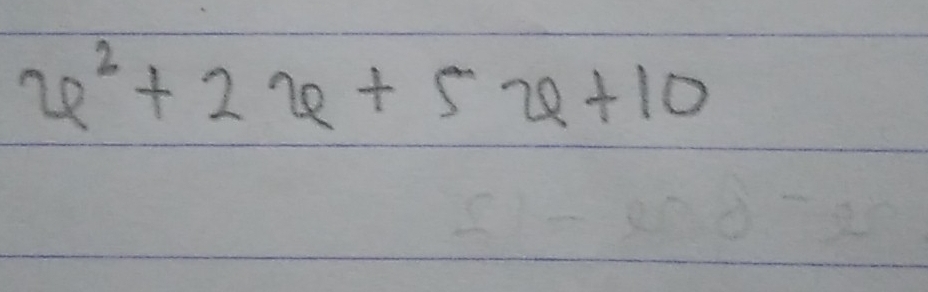 x² + 2x + 5x + 10